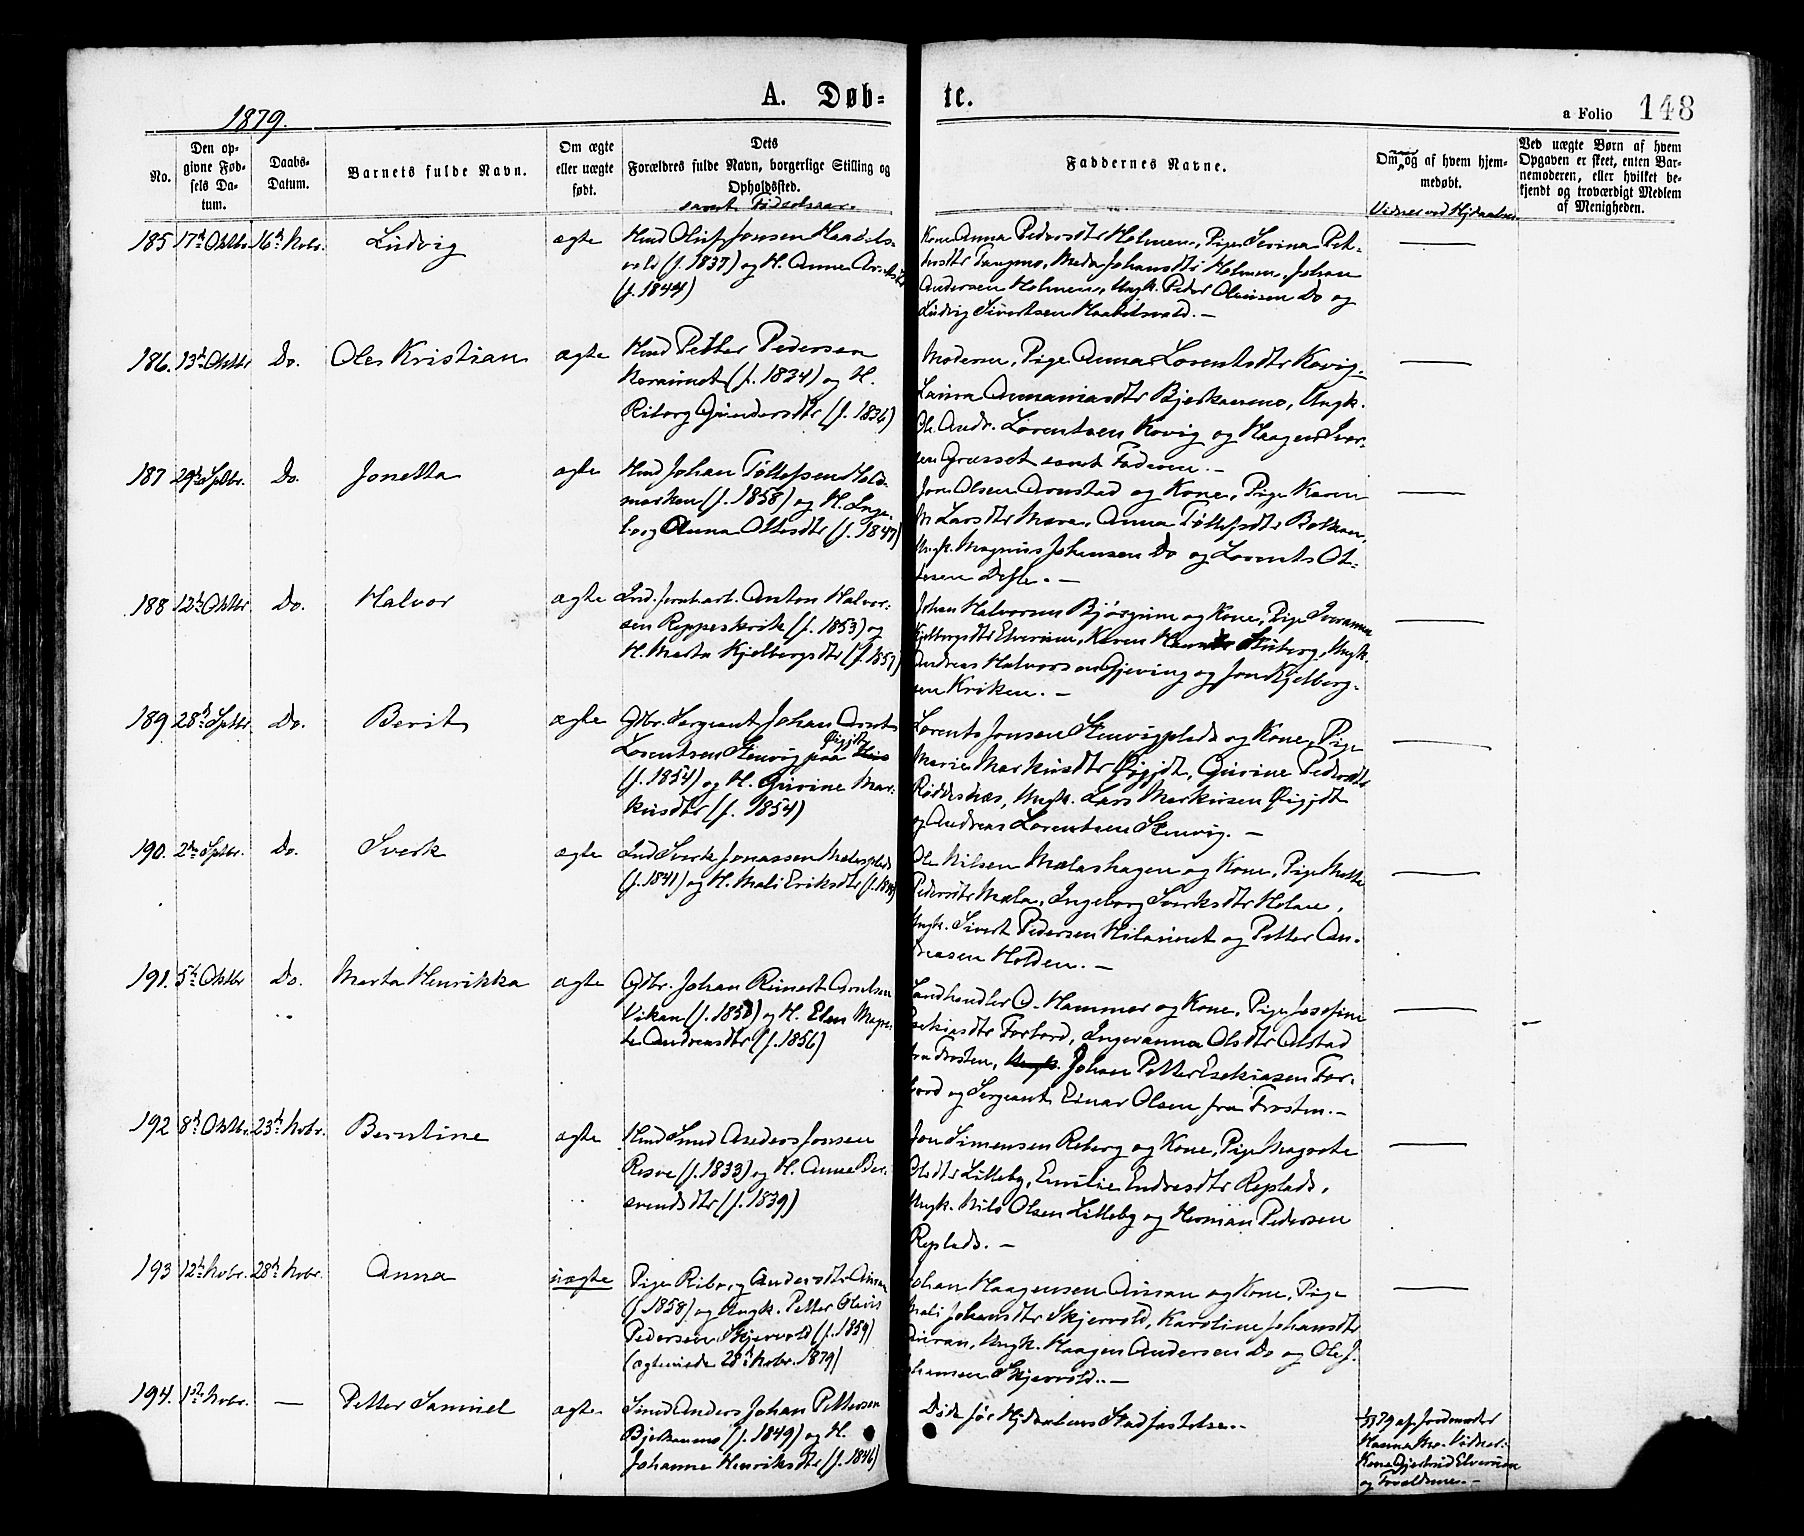 A. Døb- te.
1879.
a Folio 148
No.
Den op-
givne Fød-
sels Da-
tum.
Daabs-
Datum.
Barnets fulde Navn.
Om ægte
eller uægte
født.
Dets
Forældres fulde Navn, borgerlige Stilling og
Opholdssted.
samt Fødselsaar.
Faddernes Navne.
Om, og af hvem hjem-
medøbt.
Vidner ved Hjdaaben
Ved uægte Børn af hvem
Opgaven er skeet, enten Bar-
nemoderen, eller hvilket be-
kjendt og troværdigt Medlem
af Menigheden.
185 17de Oktbr. 16de Novbr. Ludvig ægte
Hmd Oluf Jonsen Haabets-
vold (f. 1837) og H. Anne
(f. 1844)
Kone Anna Pedersdtr Holmen, Pige Serina Pet-
tersdtr Tangmo, Meda Johansdtr Holmen, Johan
Andersen Holmen, Ungk. Peder Olausen Do og
Ludvig Sivertsen Haabetsvold. —
186. 13de Oktbr Do. Ole Kristian ægte
Hmd Petter Pedersen
(f. 1834) og H.
Riborg Gundersdtr (f. 1836)
Moderen, Pige Anna Lorentsdtr Kovig,
Laura Annaniasdtr Bjerkanmo, Ungk.
Ole Andr. Lorentsen Kovig og Haagen Ivar-
sen Græsset samt Faderen. —
187 29de Sptbr. Do. Jonetta ægte
Hmd Johan Tøllefsen Hold-
marken (f. 1858) og H. Inge-
borg Anna Ottesdtr (f. 1847)
Jon Olsen Arnstad og Kone, Pige Karen
M Larsdtr Mære, Anna Tøllefsdtr Balkan,
Ungk. Magnus Johansen Do og Lorents Ot-
tesen Defle. —
188 12te Oktbr. Do. Halvor ægte
Ind. Jernb.arb. Anton Halvor-
sen Reppeskrik (f. 1853) og
H. Marta Kjelbergsdtr (f. 1857)
Johan Halvorsen Bjørgum og Kone, Pige Iveranna
Kjelbergsdtr Elverum, Karen Stuberg, Ungk.
Andreas Halvorsen Gjeving og Jon Kjelberg-
sen Kriken. —
189 28de Sptbr. Do. Berit ægte
Gbr. Sergeant Johan Arnt
Lorentsen Stenvig paa Øigjdt
(f. 1854) og H. Gurine Mar-
kusdtr (f. 1854)
Lorents Jonsen Stenvigplads og Kone, Pige
Marie Markusdtr Øigjdt, Gurine Pedersdtr
Røddesnæs, Ungk. Lars Markusen Øigjdt
og Andreas Lorentsen Stenvig. —
190. 2den Sptbr. Do. Sverk ægte
Ind Sverk Jonassen Melesplads
(f. 1841) og H. Mali Eriksdtr
Ole Nilsen Mælashagen og Kone, Pige Mette
Pedersdtr Mæla, Ingeborg Sverksdtr Holan,
Ungk. Sivert Pedersen Hilamnet og Petter An-
dreasen Holden. —
191. 5te Oktbr Do. Marta Henrikka ægte
Gbr. Johan Reinert Arntsen
Vikan (f. 1850) og H. Elen Magre-
te Andreasdtr (f. 1856)
Landhandler O. Hammer og Kone, Pige Josefine
Esekiasdtr Forbord, Ingeranna Olsdtr Alstad
fra Frosten, Ungk. Johan Petter Esekiasen For-
bord og Sergeant Einar Olsen fra Frosten. —
192 8de Oktbr. 23de Novbr. Berntine ægte
Hmd Smed Anders Jonsen
Resve (f. 1833) og H. Anne Ber-
svendsdtr (f. 1839)
Jon Simensen Reberg og Kone, Pige Magrete
Olsdtr Lilleby, Emilie Endresdtr Replads,
Ungk. Nils Olsen Lilleby og Herman Pedersen
Replads. —
193 12te Novbr. 28de Novbr. Anna uægte
Pige Riborg Andersdtr Auran
(f. 1858) og Ungk. Petter Olaus
Pedersen Skjervold (f. 1859)
(ægteviede 28de Novbr. 1879)
Johan Haagensen Auran og Kone, Pige
Mali Johansdtr Skjervold, Karoline Johansdtr
Auran, Ungk. Haagen Andersen Do og Ole J.
Johansen Skjervold. —
194. 1ste Novbr. — Petter Samuel ægte
Smed Anders Johan Pettersen
Bjerkanmo (f. 1849) og H.
Johanna Henriksdtr (f. 1846)
Døde før Hjdaabens Stadfæstelse.
79 af Jordmoder
Hanna Moe. Vidner:
Kone Gjertrud Elverum
og Forældrene. —